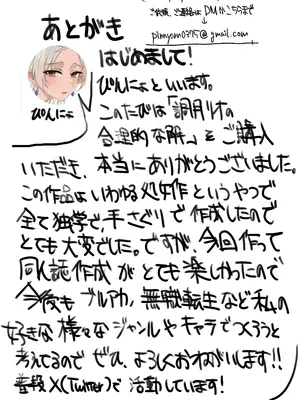 ご依頼、ご連絡は DMかこちらまで
pinnyonn0715@gmail.com
あとがき
はじめまして!
ぴんにょ
ぴんにょといいます。
このたびは「調月リオの
合理的な解」をご購入
いただき、本当にありがとうございました。
この作品はいわゆる処女作というやつで
全て独学で、手さぐりで作成したので
とても大変でした。ですが、今回作って
同人誌作成がとても楽しかったので
今後もブルアカ、無職転生など私の
好きな様々なジャンルやキャラでつくろうと
考えてるので ぜひ、よろしくおねがいします!!
普段X(Twitter)で活動しています!